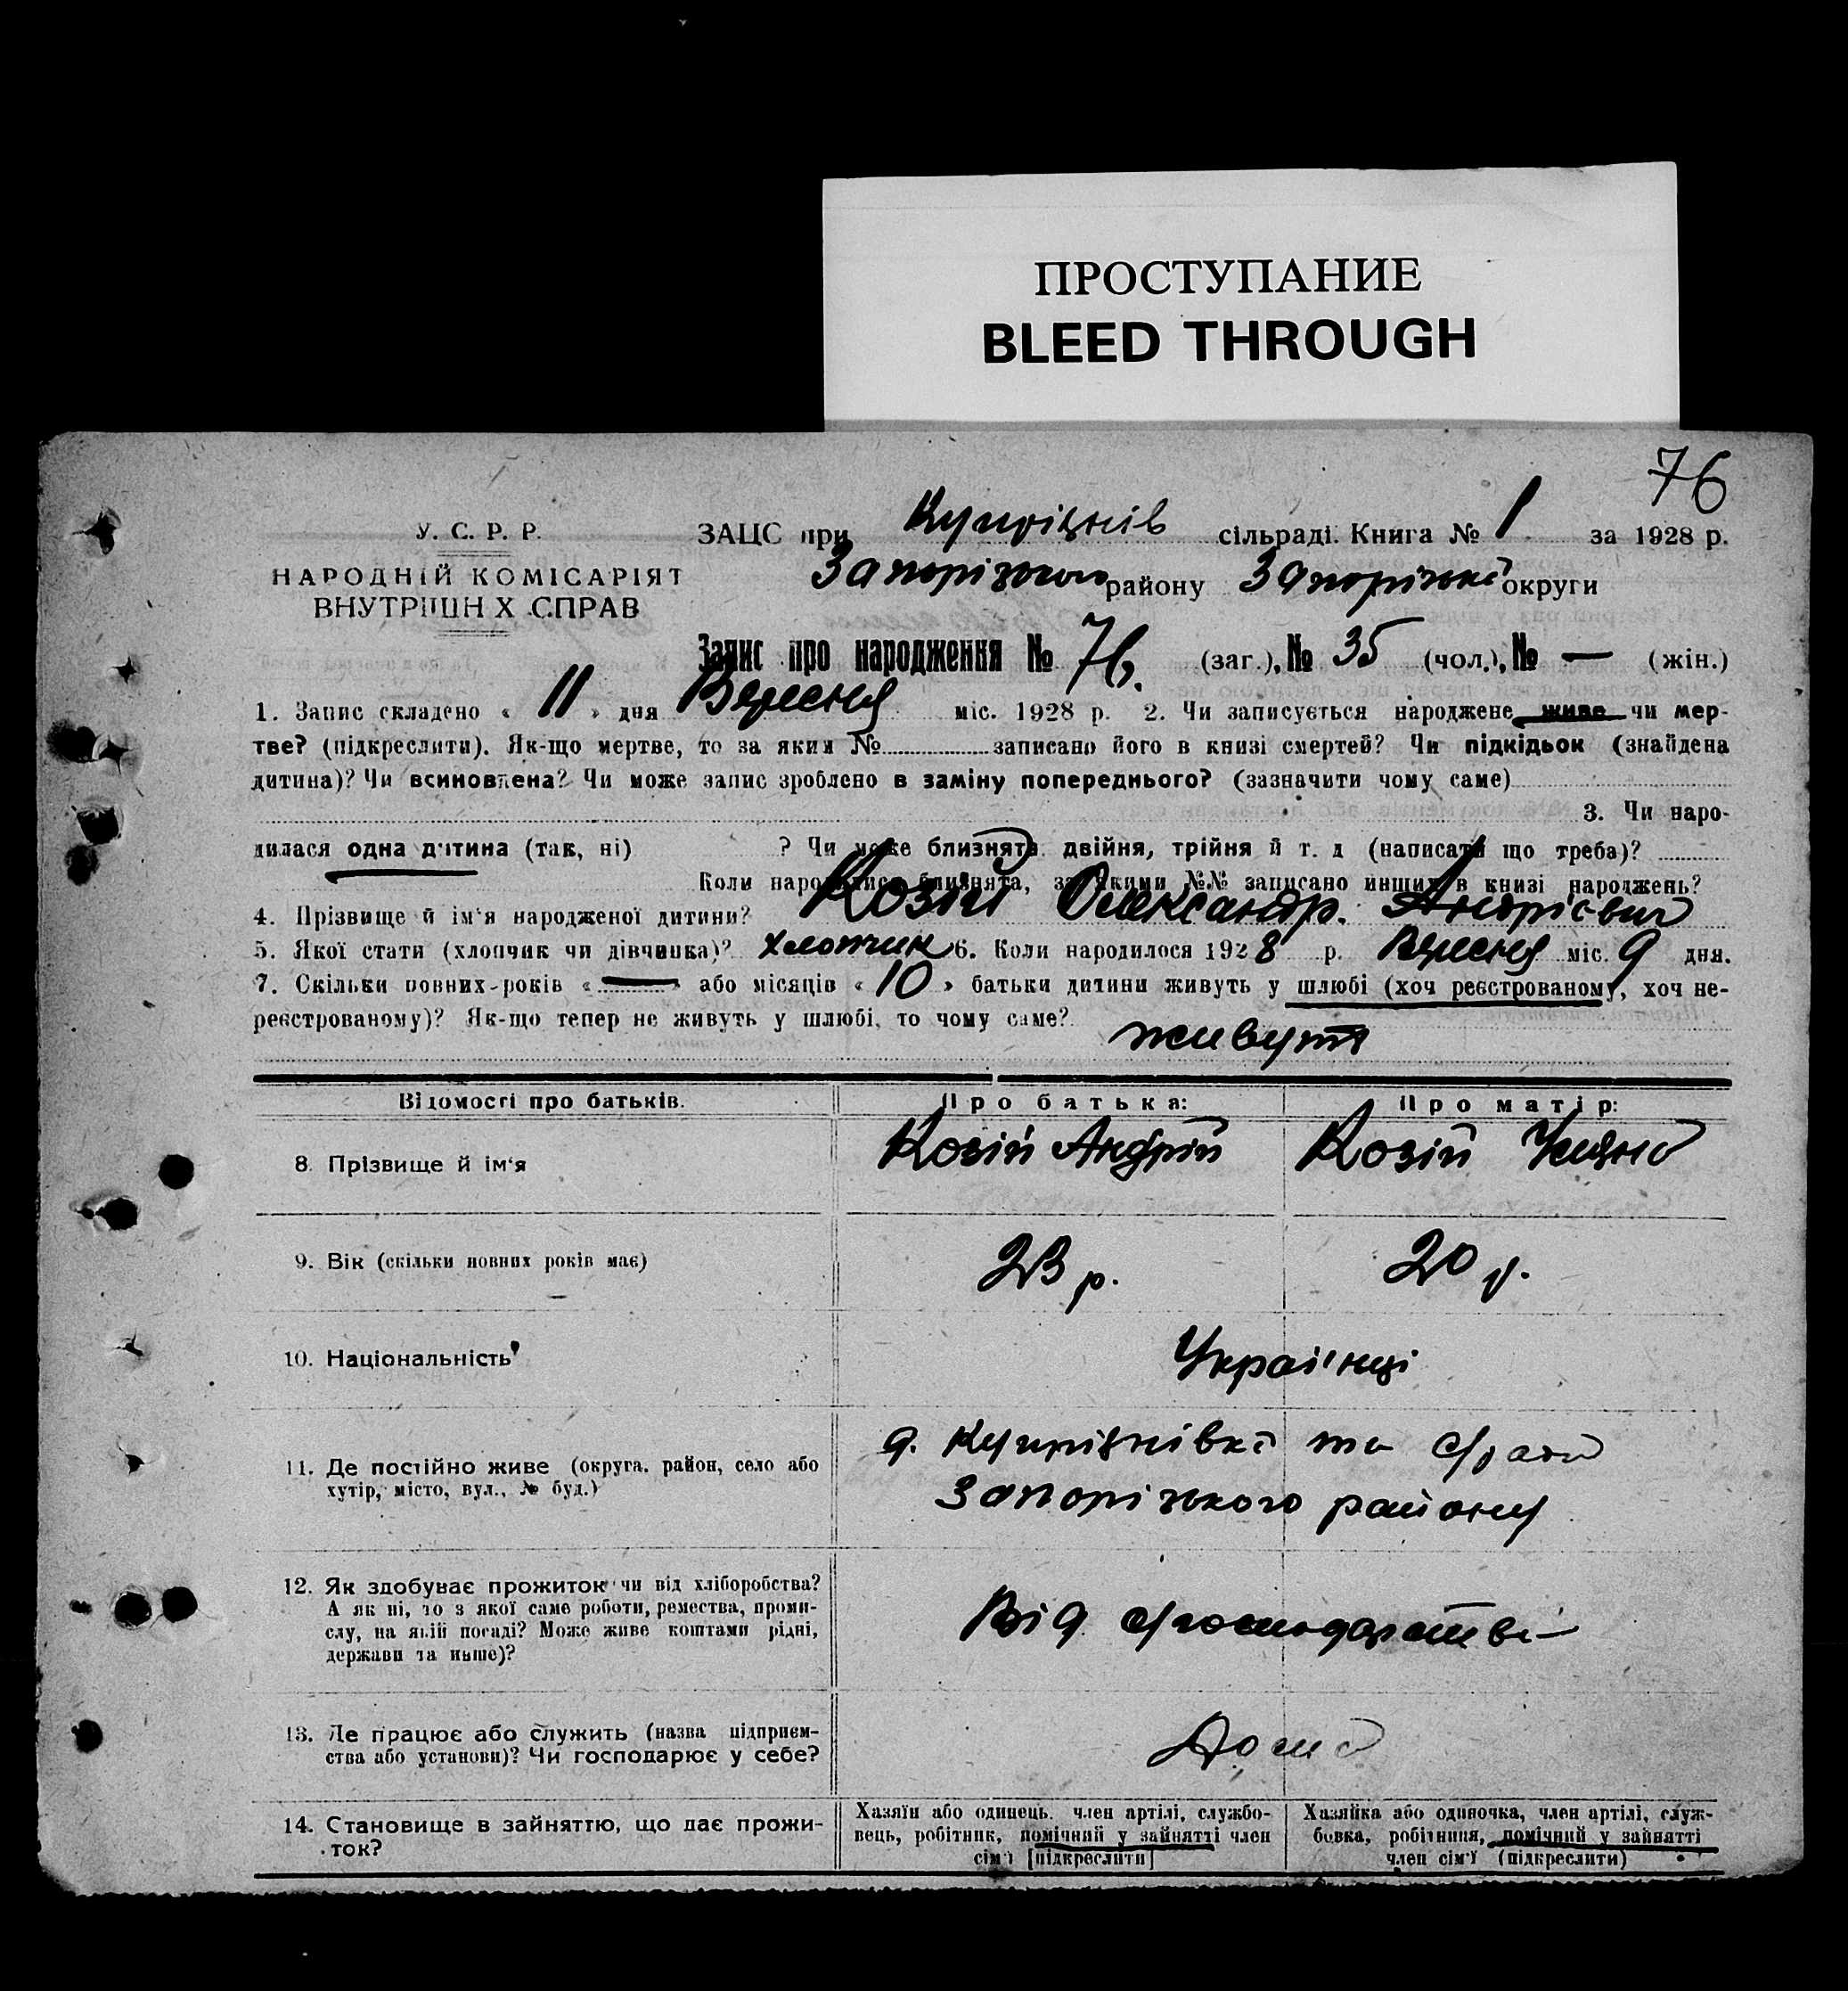 ПРОСТУПАНИЕ
BLEED THROUGH
76
У. С. Р. Р.
НАРОДНІЙ КОМІСАРІЯТ
ВНУТРІШН Х СПРАВ
ЗАЦС при сільраді. Книга № 1 за 1928 р.
Запорізького району Запорізької округи
Запис про народження № 76. (заг.), № 35 (чол.), № — (жін.)
1. Запис складено « 11 » дня Вересня міс. 1928 р. 2. Чи записується народжене живе чи мер-
тве? (підкреслити). Як-що мертве, то за яким № записано його в книзі смертей? Чи підкідьок (знайдена
дитина)? Чи всиновлена? Чи може запис зроблено в заміну попереднього? (зазначити чому саме)
3. Чи наро-
дилася одна дитина (так, ні) ? Чи може близнята двійня, трійня й т. д (написати що треба)?
Коли народилися близнята, за якими №№ записано инших в книзі народжень?
4. Прізвище й ім'я народженої дитини? Козій Олександр. Андрієвич
5. Якої статі (хлопчик чи дівчинка)? хлопчик 6. Коли народилося 1928 р. Вересня міс. 9 дня.
7. Скільки повних-років « — » або місяців « 10 » батьки дитини живуть у шлюбі (хоч реєстрованому, хоч не-
реєстрованому)? Як-що тепер не живуть у шлюбі, то чому саме? живуть
Відомості про батьків. Про батька: Про матір:
8. Прізвище й ім'я Козій Андрій Козій
9. Вік (скільки повних років має) 23 р. 20 р.
10. Національність Українці
11. Де постійно живе (округа, район, село або
хутір, місто, вул., № буд.)
Запорізького району
12. Як здобуває прожиток чи від хліборобства?
А як ні, то з якої саме роботи, ремества, проми-
слу, на якій посаді? Може живе коштами рідні,
держави та инше)?
Від
13. Де працює або служить (назва підприєм-
ства або установи)? Чи господарює у себе?
Дома
14. Становище в зайняттю, що дає прожи-
ток?
Хазяїн або одинець, член артілі, службо-
вець, робітник, помічний у зайнятті член
сім'ї [підкреслити]
Хазяйка або одиночка, член артілі, служ-
бовка, робітниця, помічний у зайнятті
член сім'ї (підкреслити)